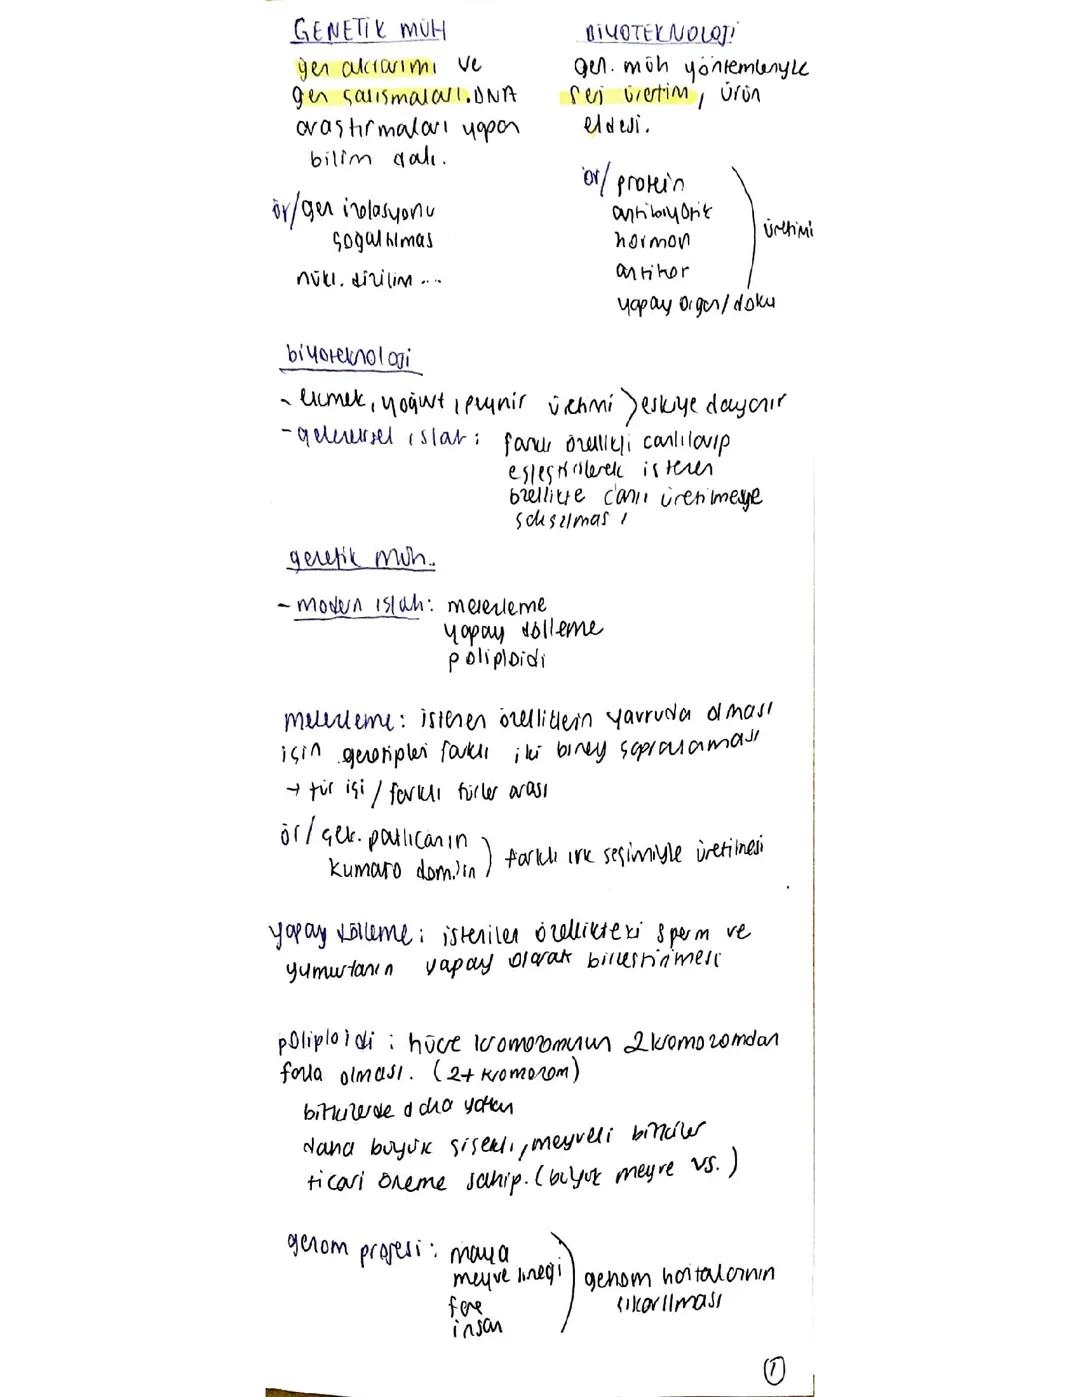 GENETİK MÜH
gen aktarımı ve
gen çalışmaları. DNA
araştırmaları yapan
bilim dalı.
ör/ gen izolasyonu
çoğaltılmas
nükl. dizilim ...
BİYOTEKNOLOJİ
gen. müh yöntemleriyle
seri üretim, ürün
eldesi.
ör/ protein
antibiyotik
hormon
antikor
yapay organ/doku
üretimi
biyoteknoloji
- ekmek, yoğurt, peynir üretimi > eskiye dayanır
- geleneksel ıslah: farklı özellikli canlıların
eşleştirilerek istenen
özellikte canlı üretilmeye
çalışılması
genetik müh.
- modern ıslah: melezleme
yapay dölleme
poliploidi
melezleme: istenen özelliklerin yavruda olması
için genotipleri farklı iki birey çaprazlaması
→ tür içi / farklı türler arası
ör/ çek. patlıcanın
kumato dom.'in
farklı ırk seçimiyle üretilmesi
yapay dölleme: istenilen özellikteki sperm ve
yumurtanın yapay olarak birleştirilmesi
poliploidi: hücre kromozomunun 2 kromozomdan
fazla olması. (2+ kromozom)
bitkilerde daha yaygın
daha büyük çiçekli, meyveli bitkiler
ticari öneme sahip. (büyük meyve vs.)
genom projesi: maya
meyve sineği
fare
insan
genom haritalarının
çıkarılması
1